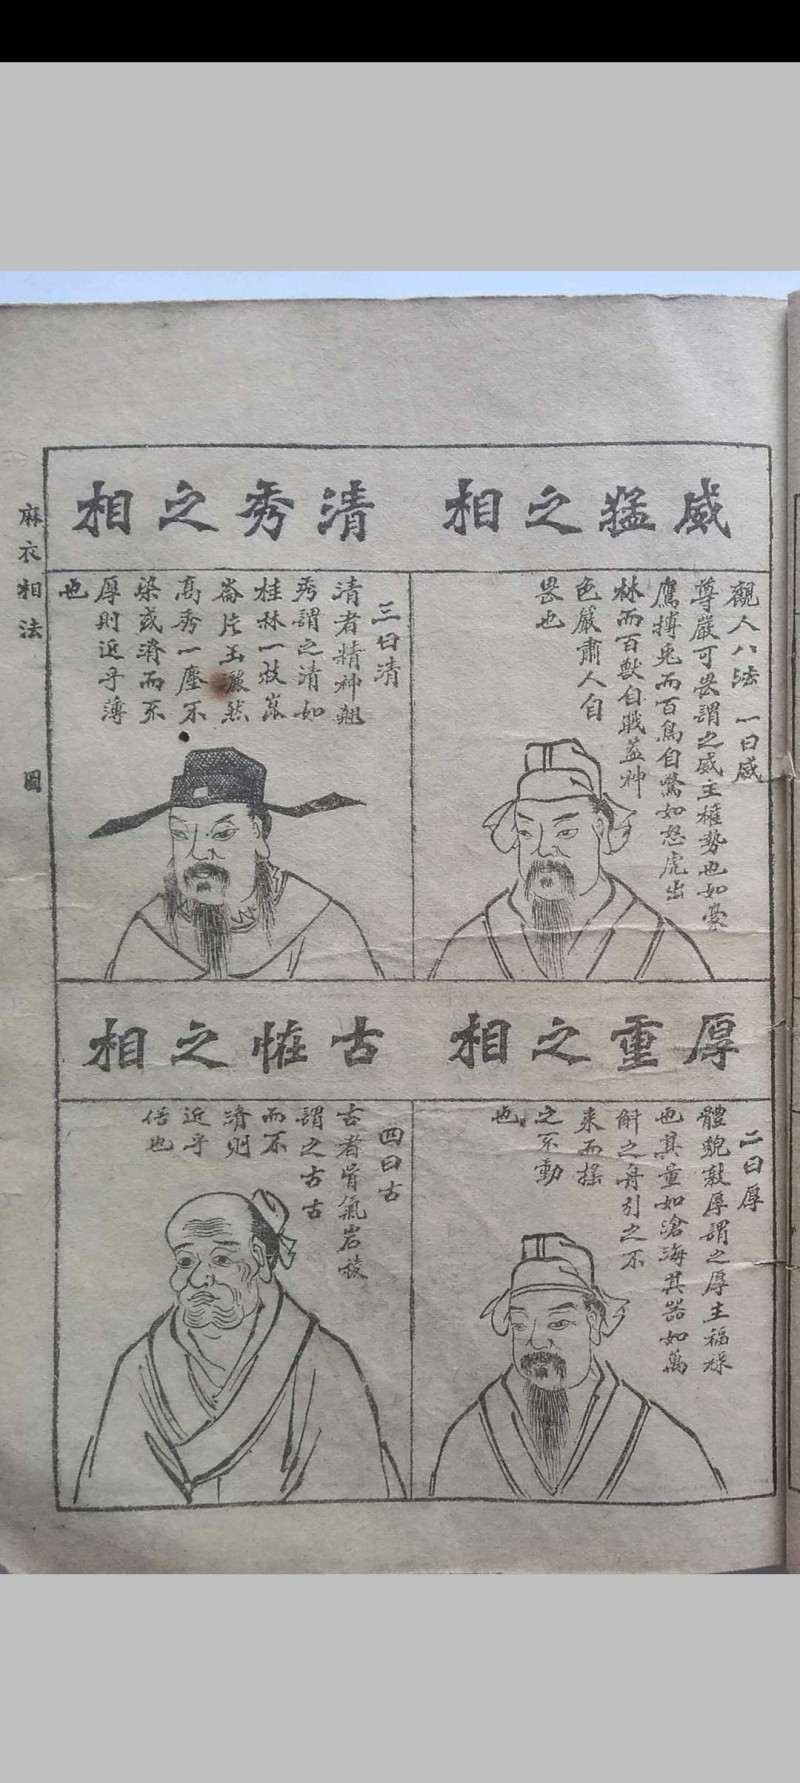 威猛之相
觀人八法一曰威
尊嚴可畏謂之威主權勢也如豪
鷹搏兔而百鳥自驚如怒虎出
林而百獸自戰蓋神
色嚴肅人自
畏也
厚重之相
二曰厚
體貌敦厚謂之厚主福祿
也其量如滄海其器如萬
斛之舟引之不
來而搖
之不動
也
清秀之相
三曰清
清者精神翹
秀謂之清如
桂林一枝崑
崙片玉灑然
高秀一塵不
染或清而不
厚則近乎薄
也
古恠之相
四曰古
古者骨氣岩稜
謂之古古
而不
清則
近乎
俗也
麻衣相法
圖